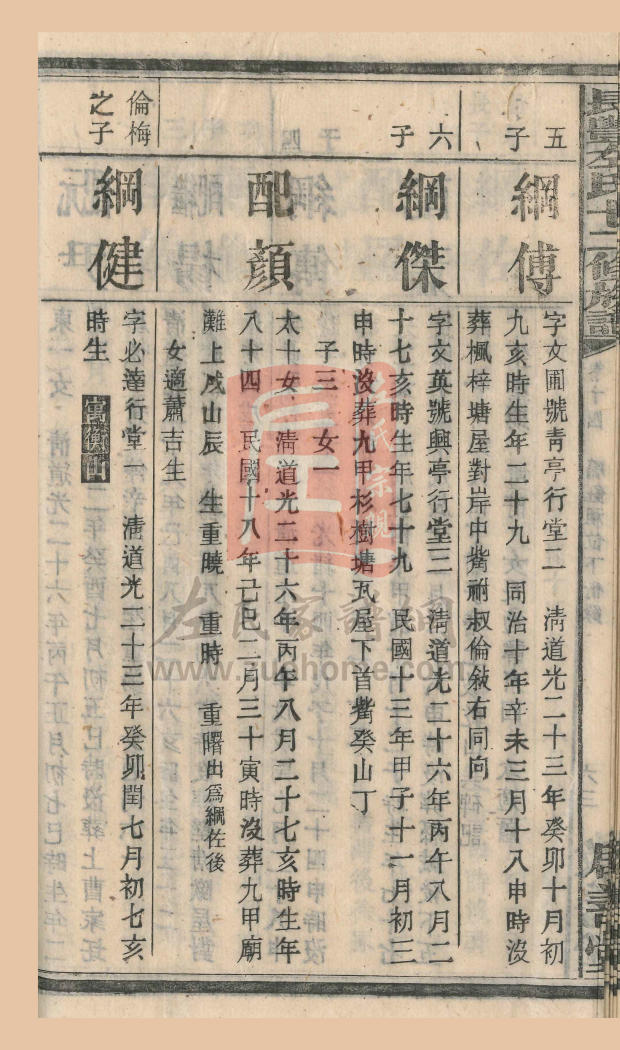 長豐左氏十二修族譜
五子
綱傅
字文圃號靑亭行堂二 淸道光二十三年癸卯十月初
九亥時生年二十九 同治十年辛未三月十八申時沒
葬楓梓塘屋對岸中觜祔叔倫敍右同向
六子
綱傑
字文英號興亭行堂三 淸道光二十六年丙午八月二
十七亥時生年七十九 民國十三年甲子十一月初三
申時沒葬九甲杉樹塘瓦屋下首觜癸山丁
子三 女一
配顔
太十女 淸道光二十六年丙午八月二十七亥時生年
八十四 民國十八年己巳二月三十寅時沒葬九甲廟
灘上戍山辰 生重曉 重時 重曙出爲綱佐後
女適蕭吉生
倫梅之子
綱健
字必達行堂一 淸道光二十三年癸卯閏七月初七亥
時生
左氏家譜網
www.zuohome.com